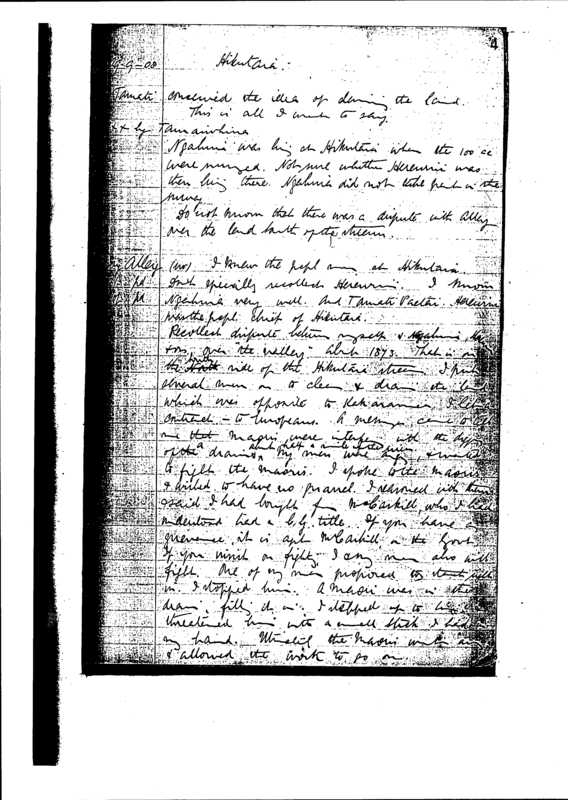 4
-9-08 Hikutaia.
Tamati conceived the idea of claiming the land.
This is all I wish to say
x x by Tamairohina
Ngahuia was living at Hikutaia when the 100 ac
were surveyed. Not sure whether Hereuini was
then living there. Ngahuia did not take part in the
survey
Do not know that there was a dispute with Alley
over the land South of the stream.
Alley I knew the people at Hikutaia.
Don't specially recollect Hereuini. I know
Ngahuia very well. And Tamati Paetai. Hereuini
was the chief of Hikutaia.
Recollect dispute between myself & Ngahuia,
over the valley about 1873. That is on
the side of the Hikutaia stream I put
several men on to clean & drain the
which was opposite to I let
contract – to Europeans. A came to tell
me that Maoris were with the
of the drains about half a mile My men were &
to fight the Maoris. I spoke to the Maoris
& wished to have no quarrel. I reasoned with them
& said I had bought from McCaskill who I had
understood had a C.G. title. If you have a
grievance it is agst McCaskill or the Govt.
If you insist on fighting I & my men also will
fight. One of my men proposed to
in. I stopped him. A Maori was in the
drain, filling it in. I stepped up to him &
threatened him with a small stick I had in
my hand. Ultimately the Maoris went away
& allowed the work to go on.